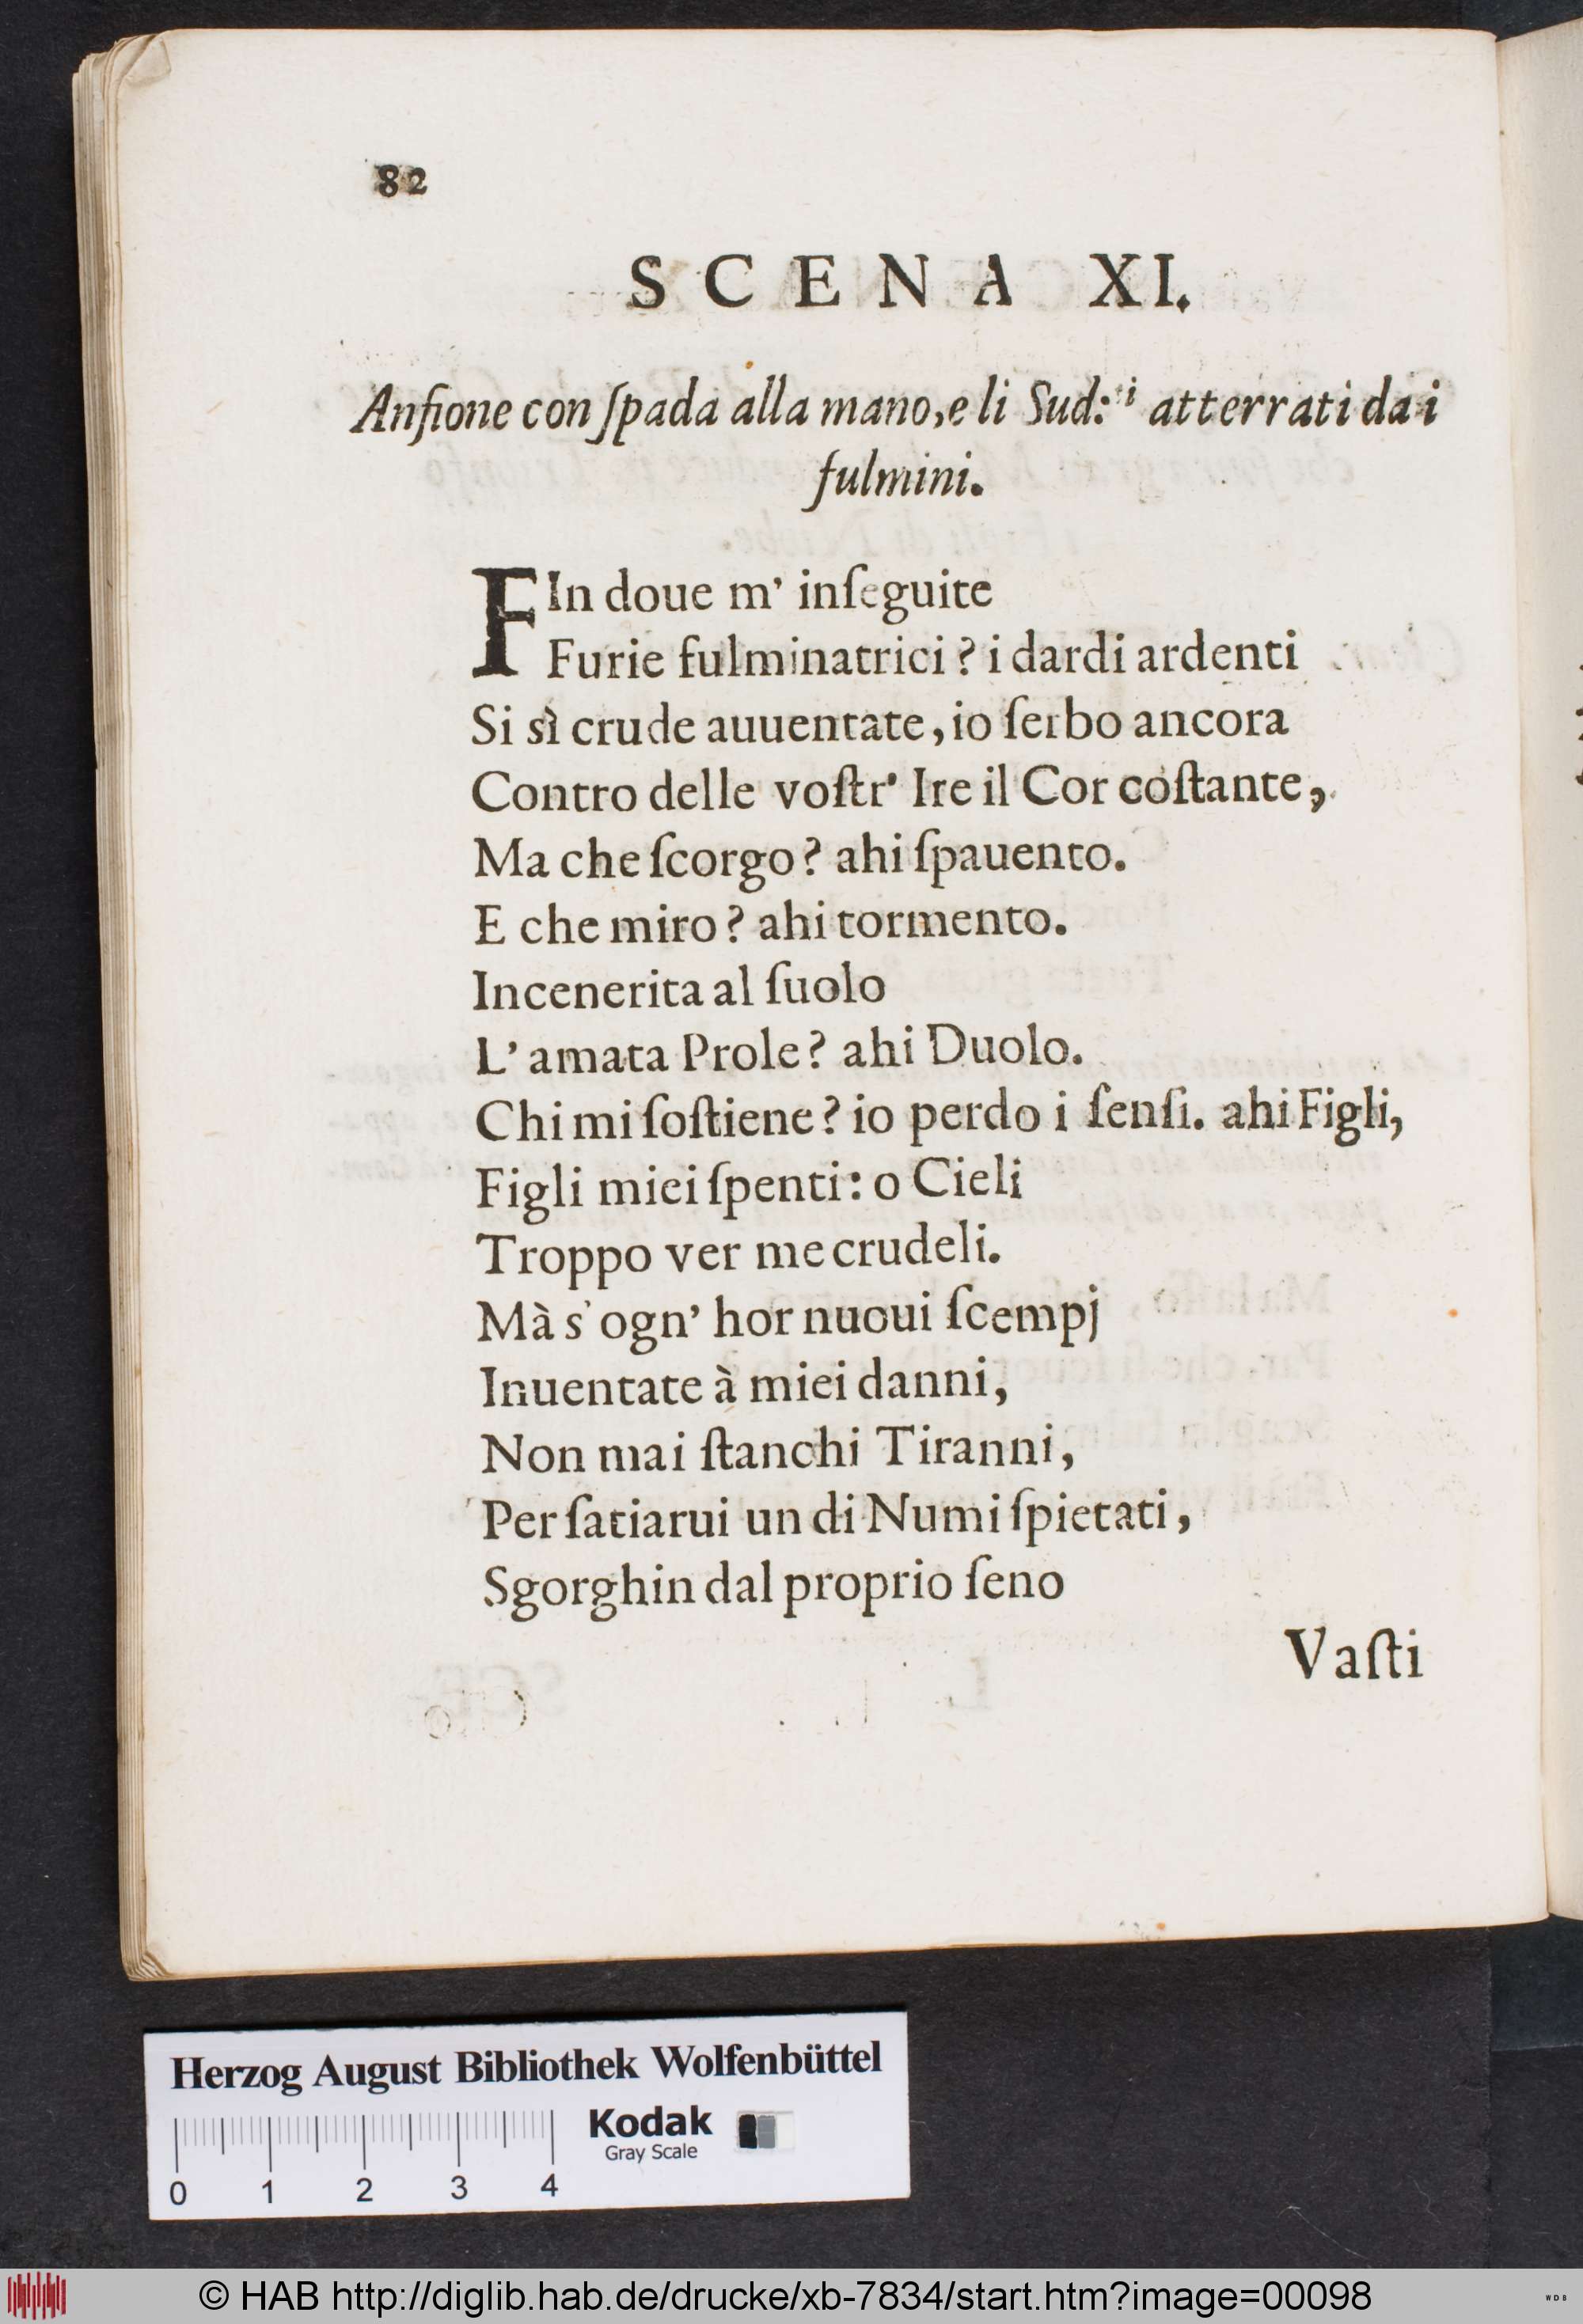 82
SCENA XI.
Anfione con ſpada alla mano, e li Sud:ti atterrati da i
fulmini.
FIn doue m' inſeguite
Furie fulminatrici? i dardi ardenti
Si sì crude auuentate, io ſerbo ancora
Contro delle voſtr' Ire il Cor coſtante,
Ma che ſcorgo? ahi ſpauento.
E che miro? ahi tormento.
Incenerita al ſuolo
L' amata Prole? ahi Duolo.
Chi mi ſoſtiene? io perdo i ſenſi. ahi Figli,
Figli miei ſpenti: o Cieli
Troppo ver me crudeli.
Mà s' ogn' hor nuoui ſcempj
Inuentate à miei danni,
Non mai ſtanchi Tiranni,
Per ſatiarui un di Numi ſpietati,
Sgorghin dal proprio ſeno
Vaſti
Herzog August Bibliothek Wolfenbüttel
Kodak
Gray Scale
0 1 2 3 4
© HAB http://diglib.hab.de/drucke/xb-7834/start.htm?image=00098
WDB